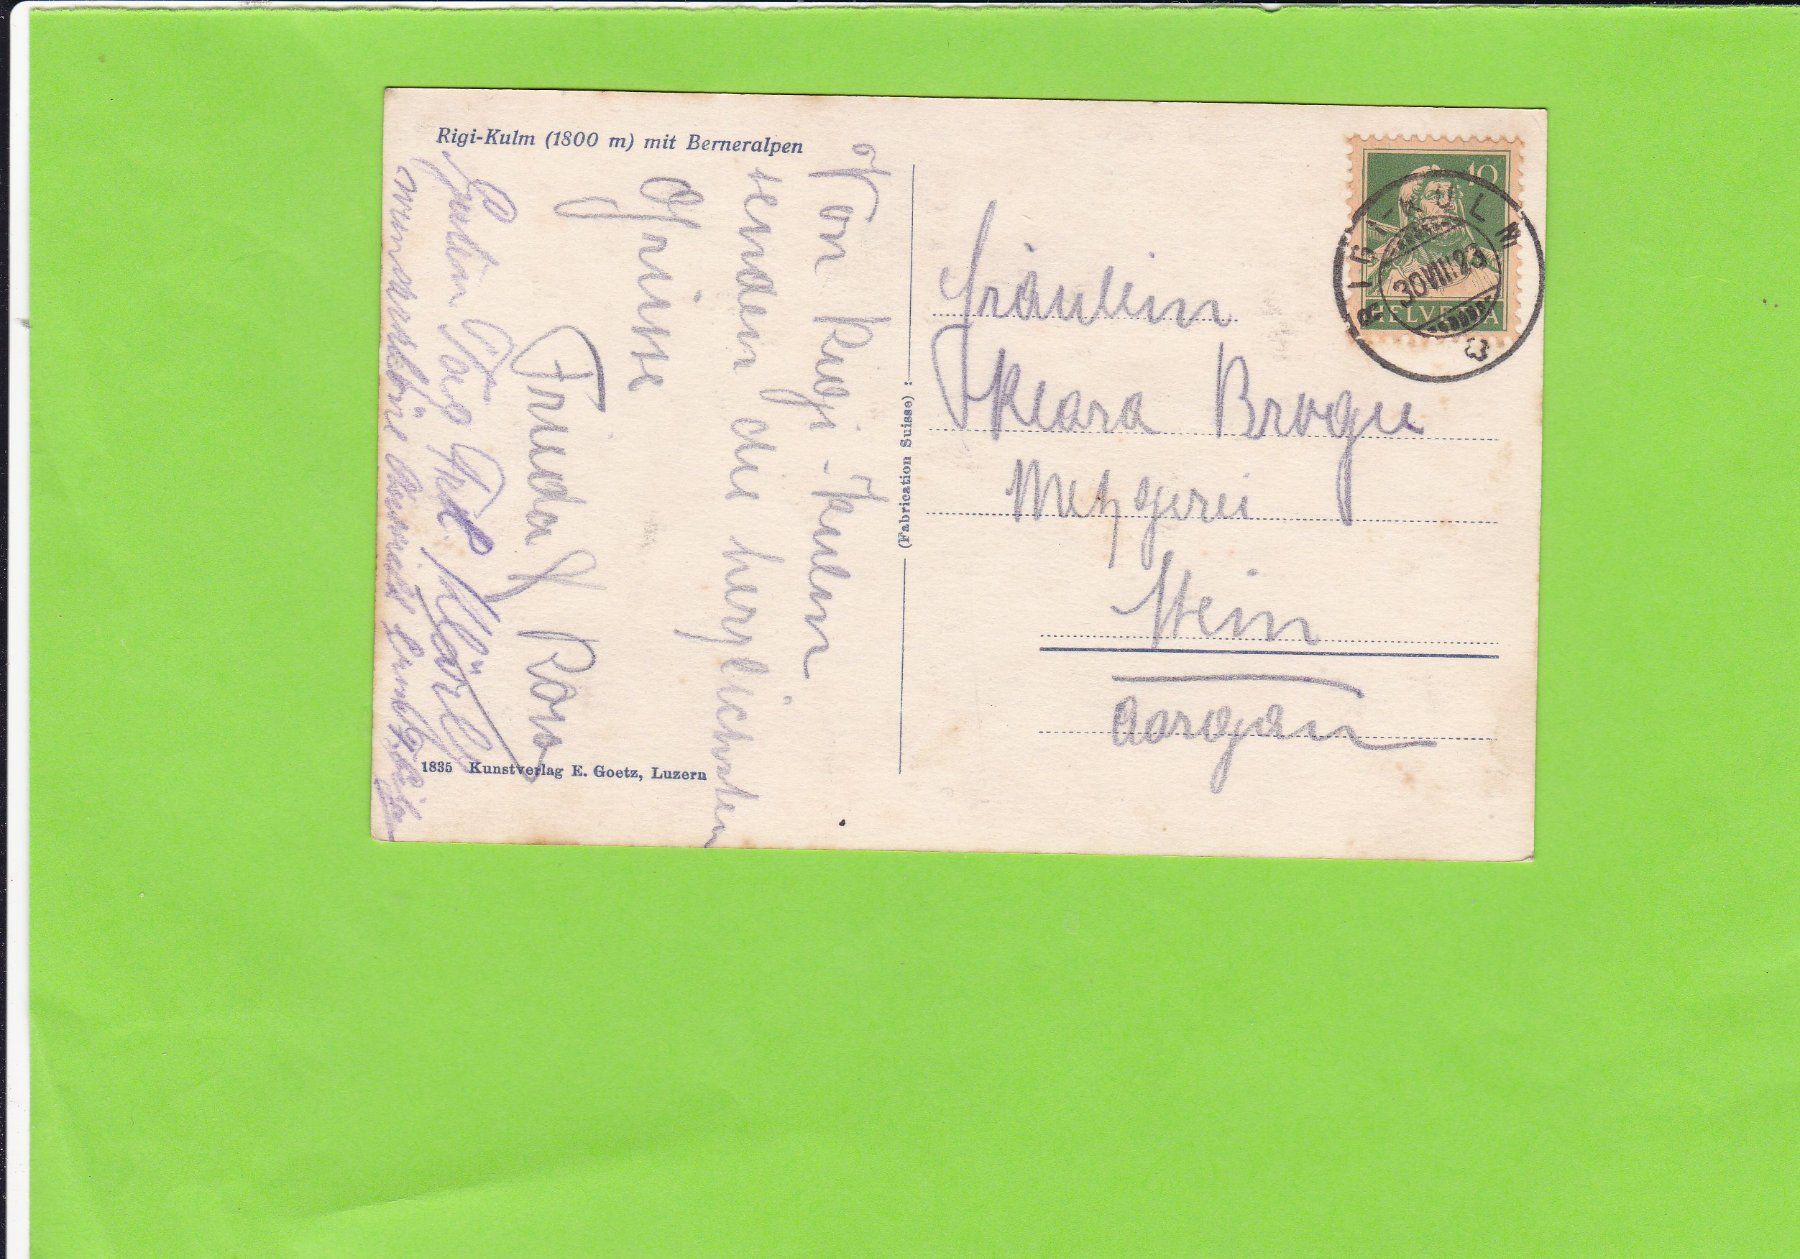 Rigi-Kulm (1800 m) mit Berneralpen
Von Rigi-Kulm
senden die herzlichsten
Grüsse
Frieda & Rosa
Guten Tag Frl. Klärl
wunderschöne
1835 Kunstverlag E. Goetz, Luzern
(Fabrication Suisse)
10
HELVETIA
RIGI-KULM
30.VIII.23
Fräulein
Klara Brogli
Metzgerei
Stein
Aargau